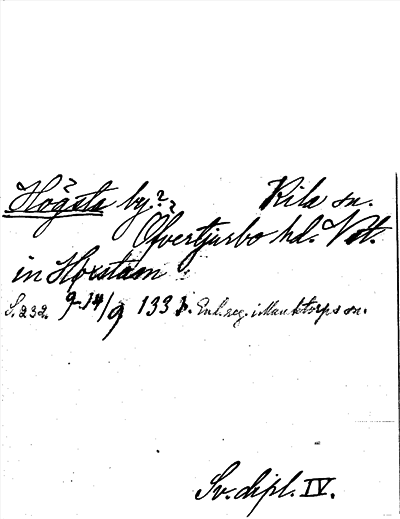 Högsta by? Kila sn.
Öfvertjurbo hd. Vstm.
in Høxstasn
S. 232. 9-14/9 1331. Enl. reg. i Munktorps sn.
Sv. dipl. IV.